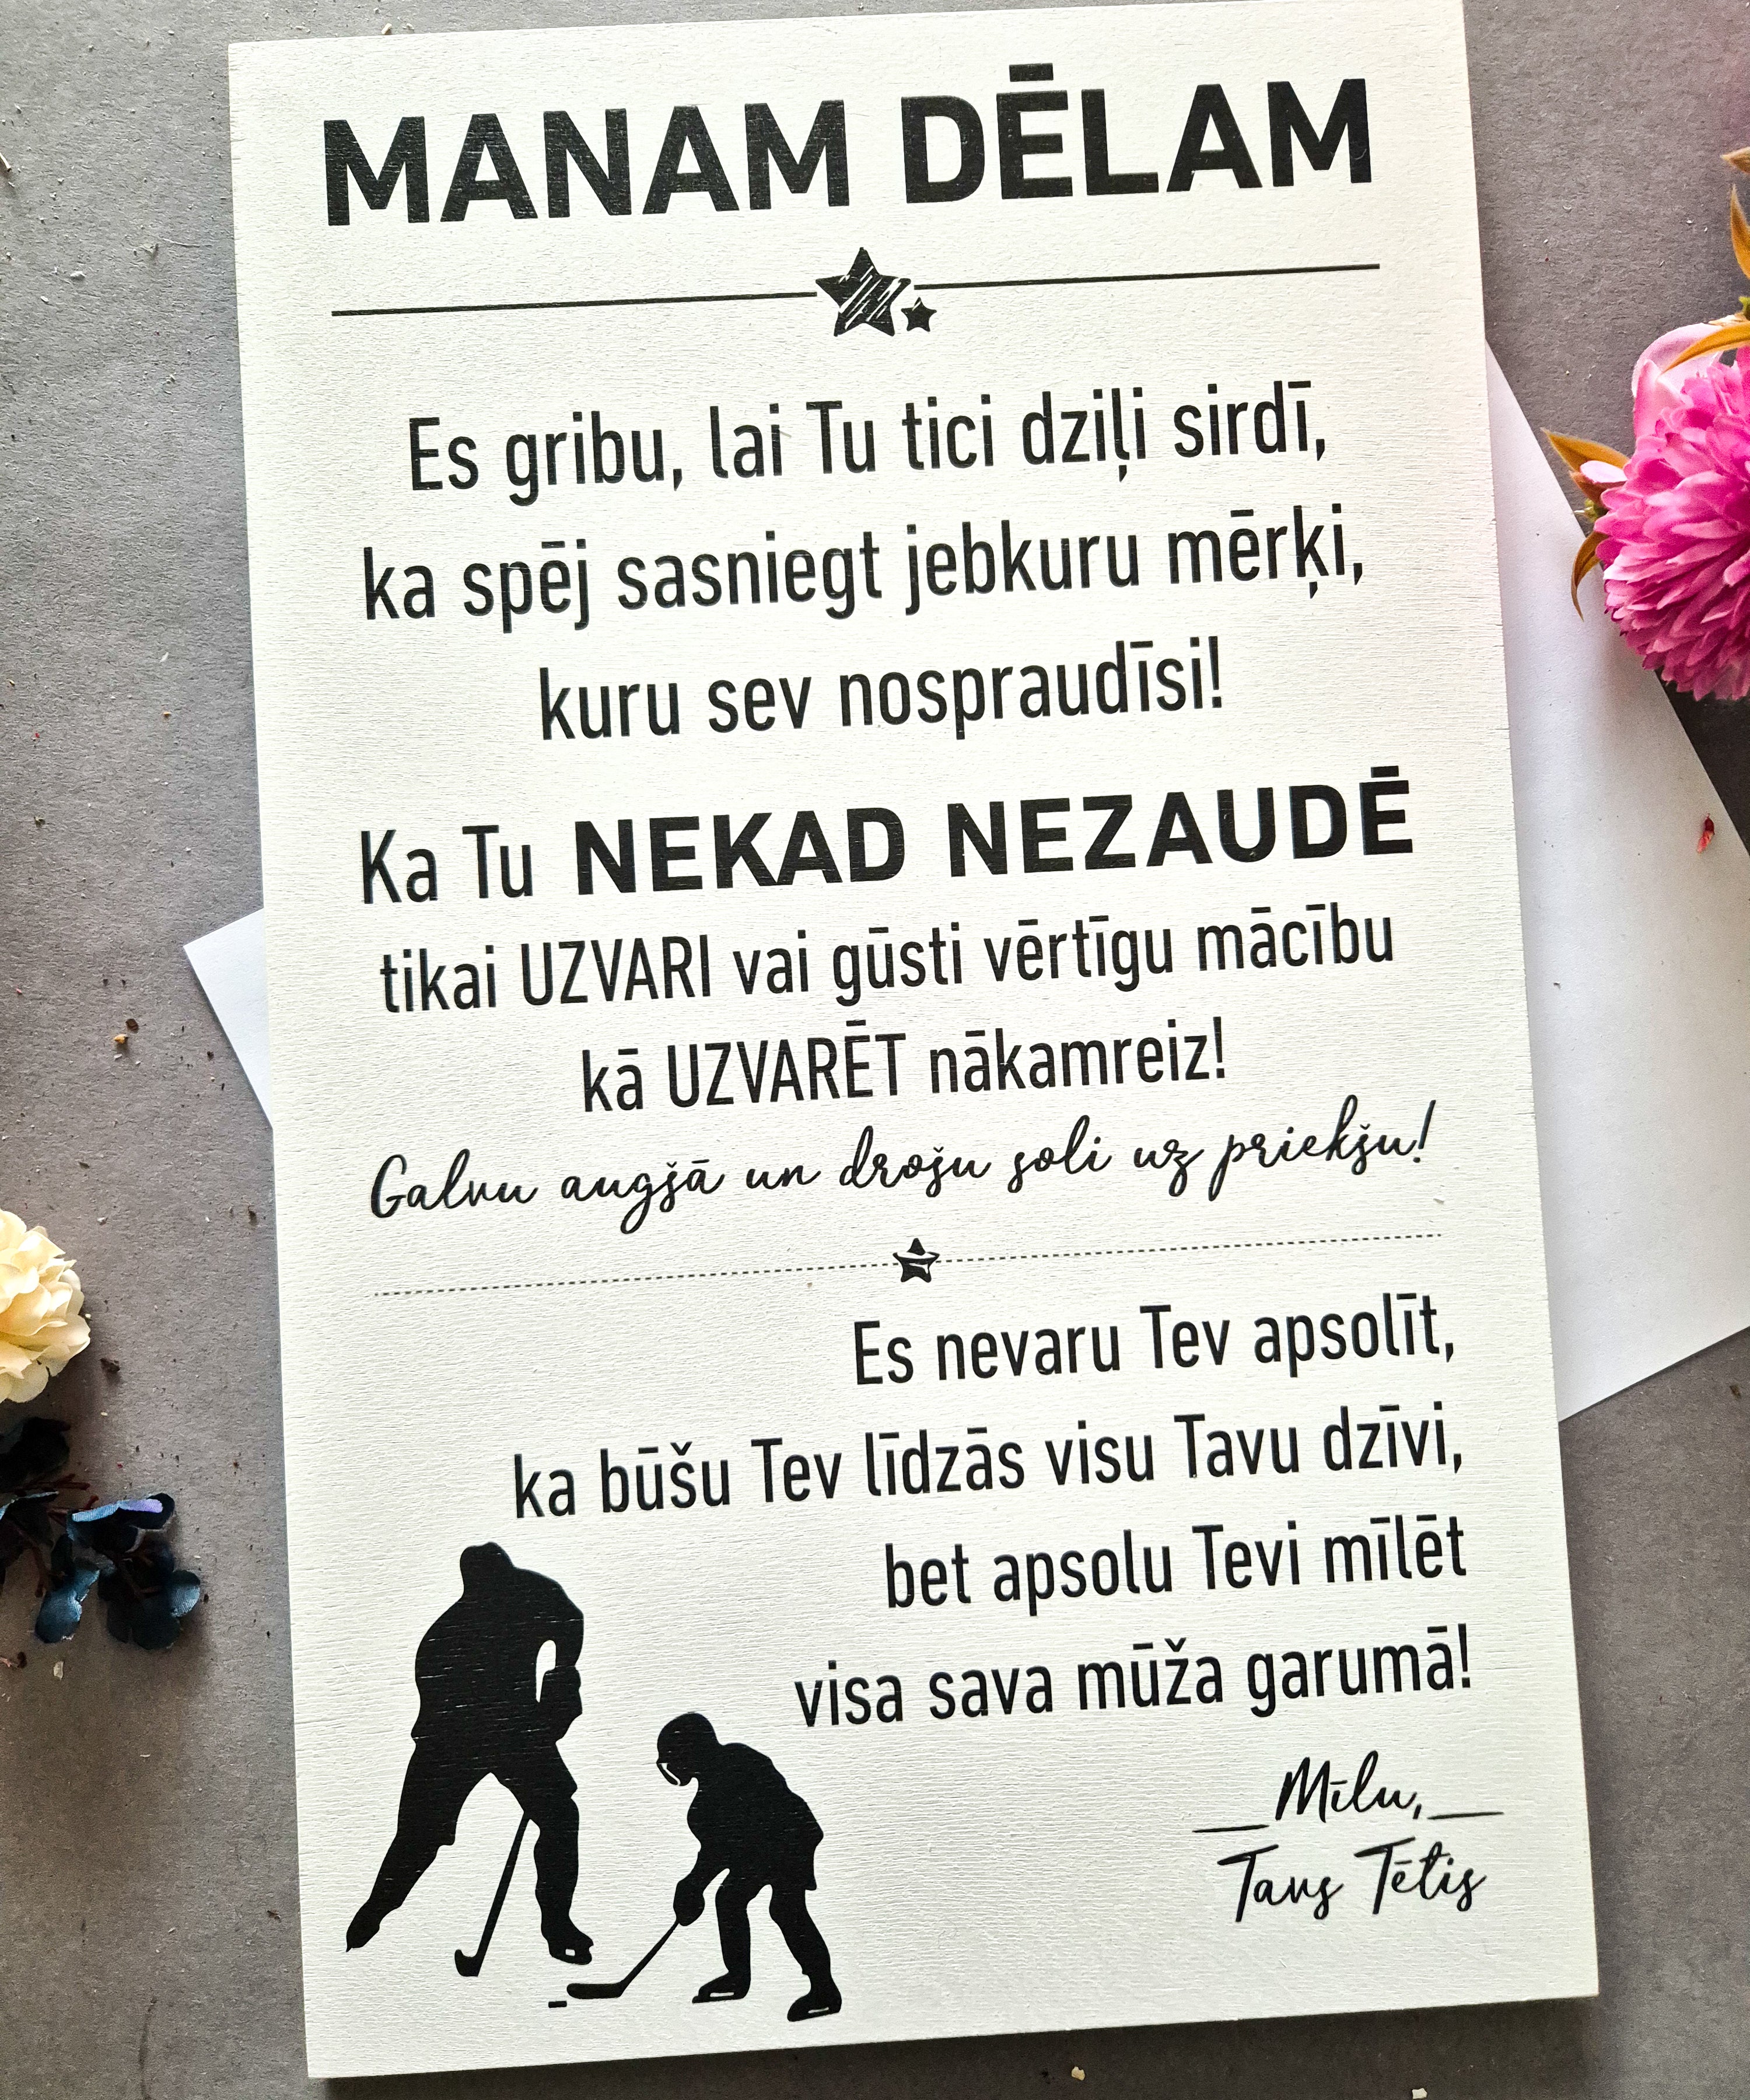 MANAM DĒLAM
Es gribu, lai Tu tici dziļi sirdī,
ka spēj sasniegt jebkuru mērķi,
kuru sev nospraudīsi!
Ka Tu NEKAD NEZAUDĒ
tikai UZVARI vai gūsti vērtīgu mācību
kā UZVARĒT nākamreiz!
Galvu augšā un drošu soli uz priekšu!
Es nevaru Tev apsolīt,
ka būšu Tev līdzās visu Tavu dzīvi,
bet apsolu Tevi mīlēt
visa sava mūža garumā!
Mīlu,
Tavs Tētis